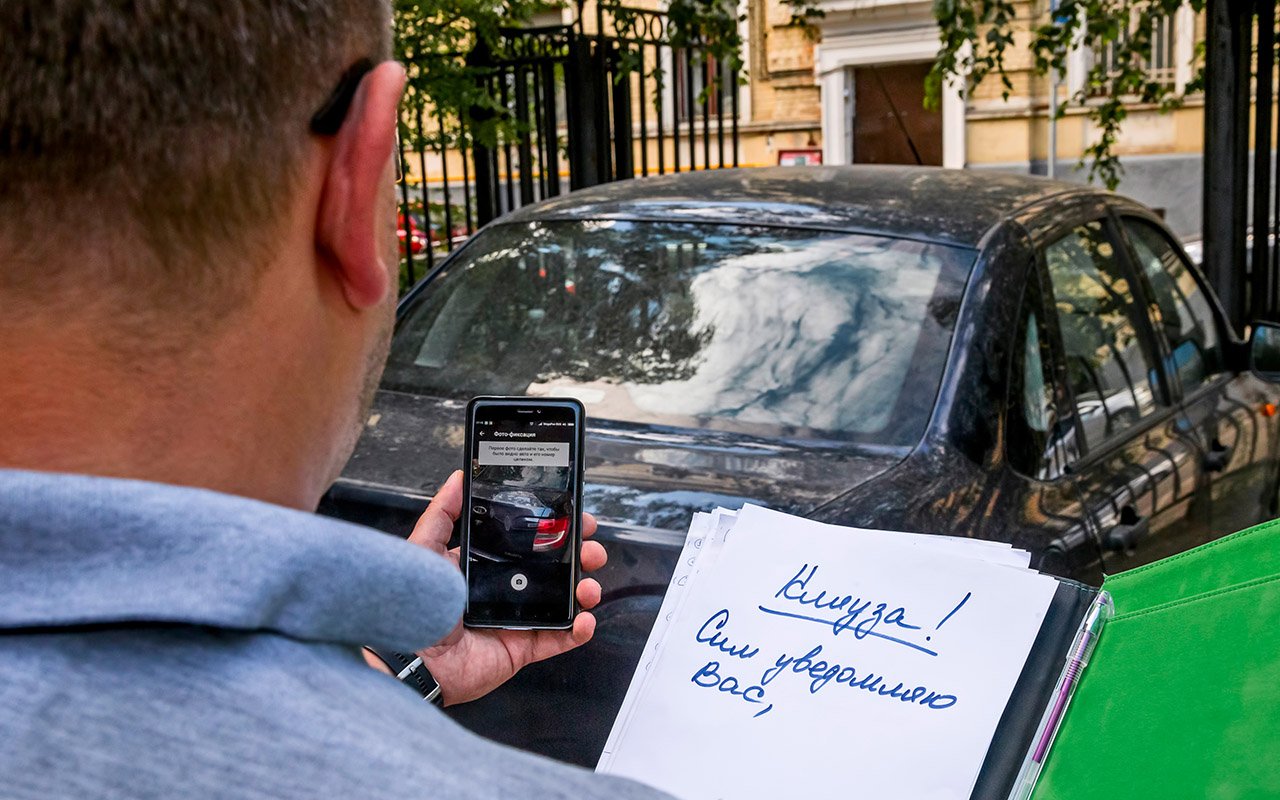 Фото-фиксация
Первое фото сделайте так, чтобы
было видно авто и его номер
целиком.
Кляуза!
Сим уведомляю
Вас,